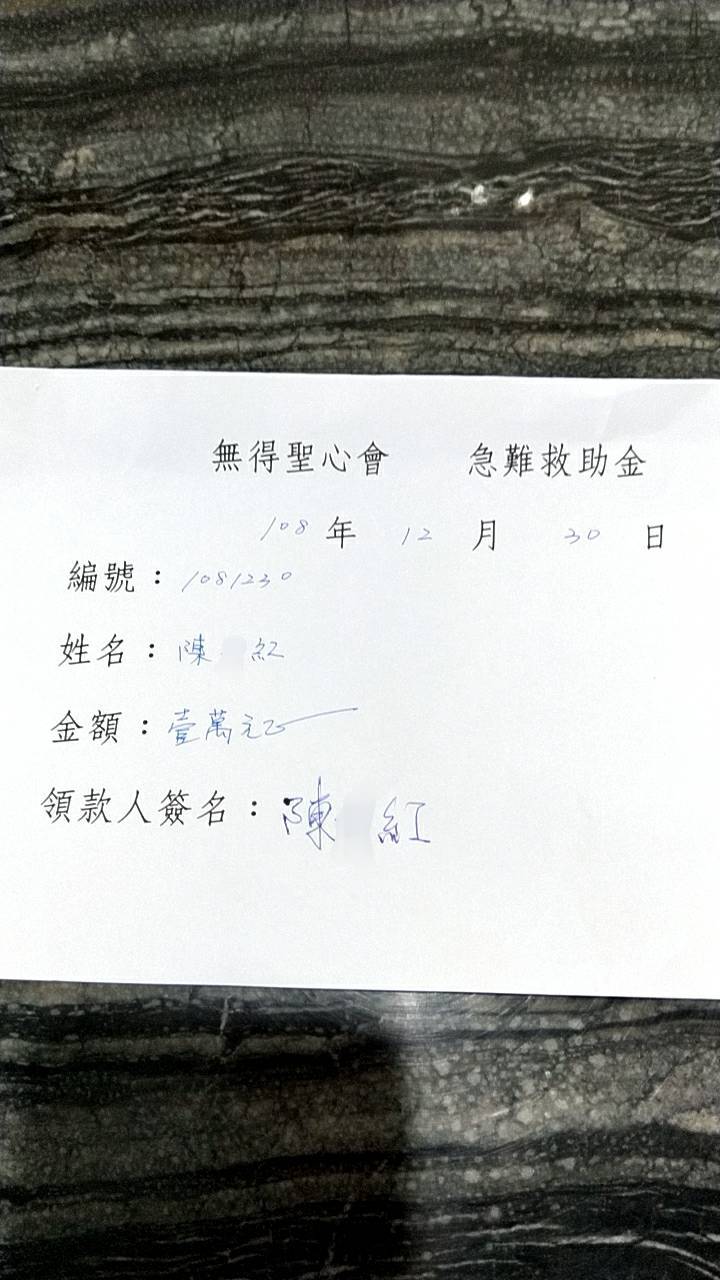 無得聖心會 急難救助金
108 年 12 月 30 日
編號：1081230
姓名：陳 紅
金額：壹萬元正
領款人簽名：陳 紅